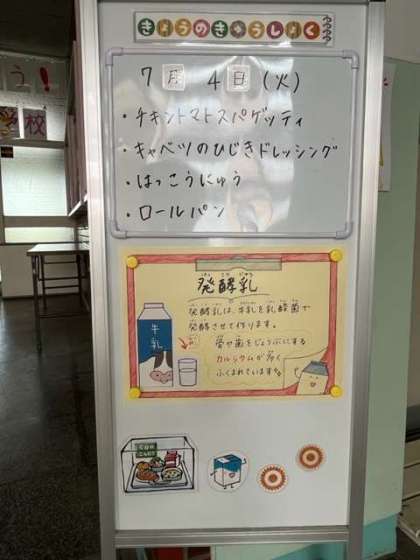 きょうのきゅうしょく
7月4日(火)
・チキントマトスパゲッティ
・キャベツのひじきドレッシング
・はっこうにゅう
・ロールパン
はっこうにゅう
発酵乳
発酵乳は、牛乳を乳酸菌で
発酵させて作ります。
牛乳
骨や歯をじょうぶにする
カルシウムが多く
ふくまれています。
う!
校